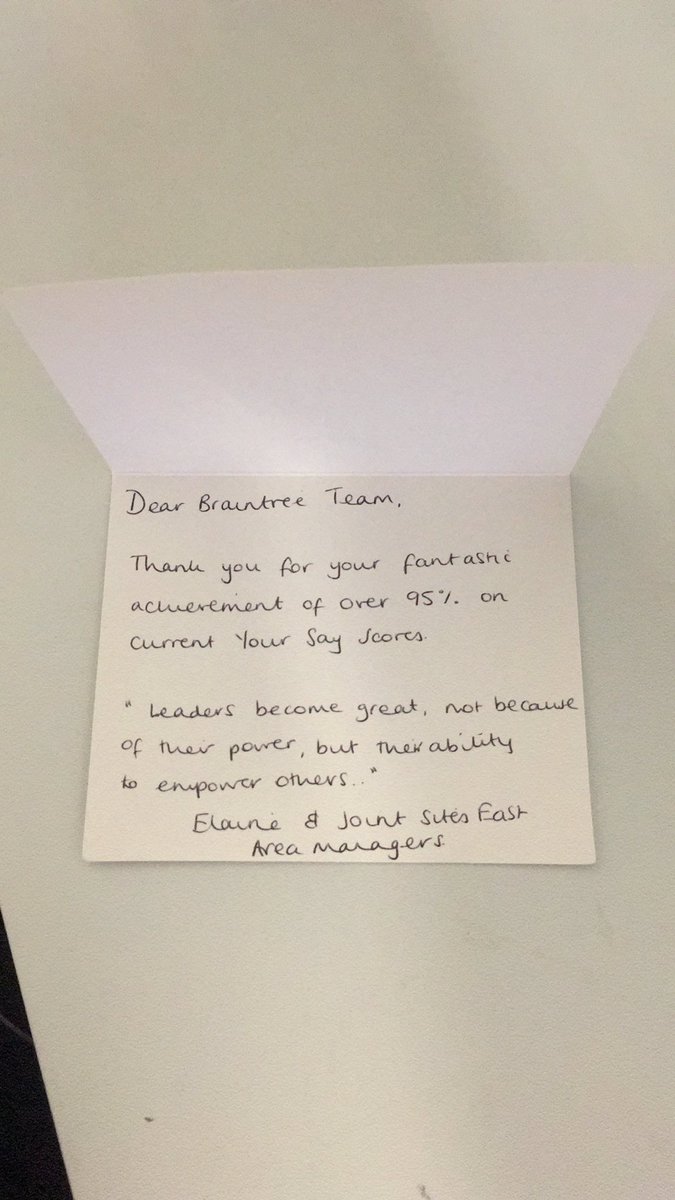 Dear Braintree Team,
Thank you for your fantastic
achievement of over 95% on
current Your Say scores.
" Leaders become great, not because
of their power, but their ability
to empower others.."
Elaine & Joint Sites East
Area Managers